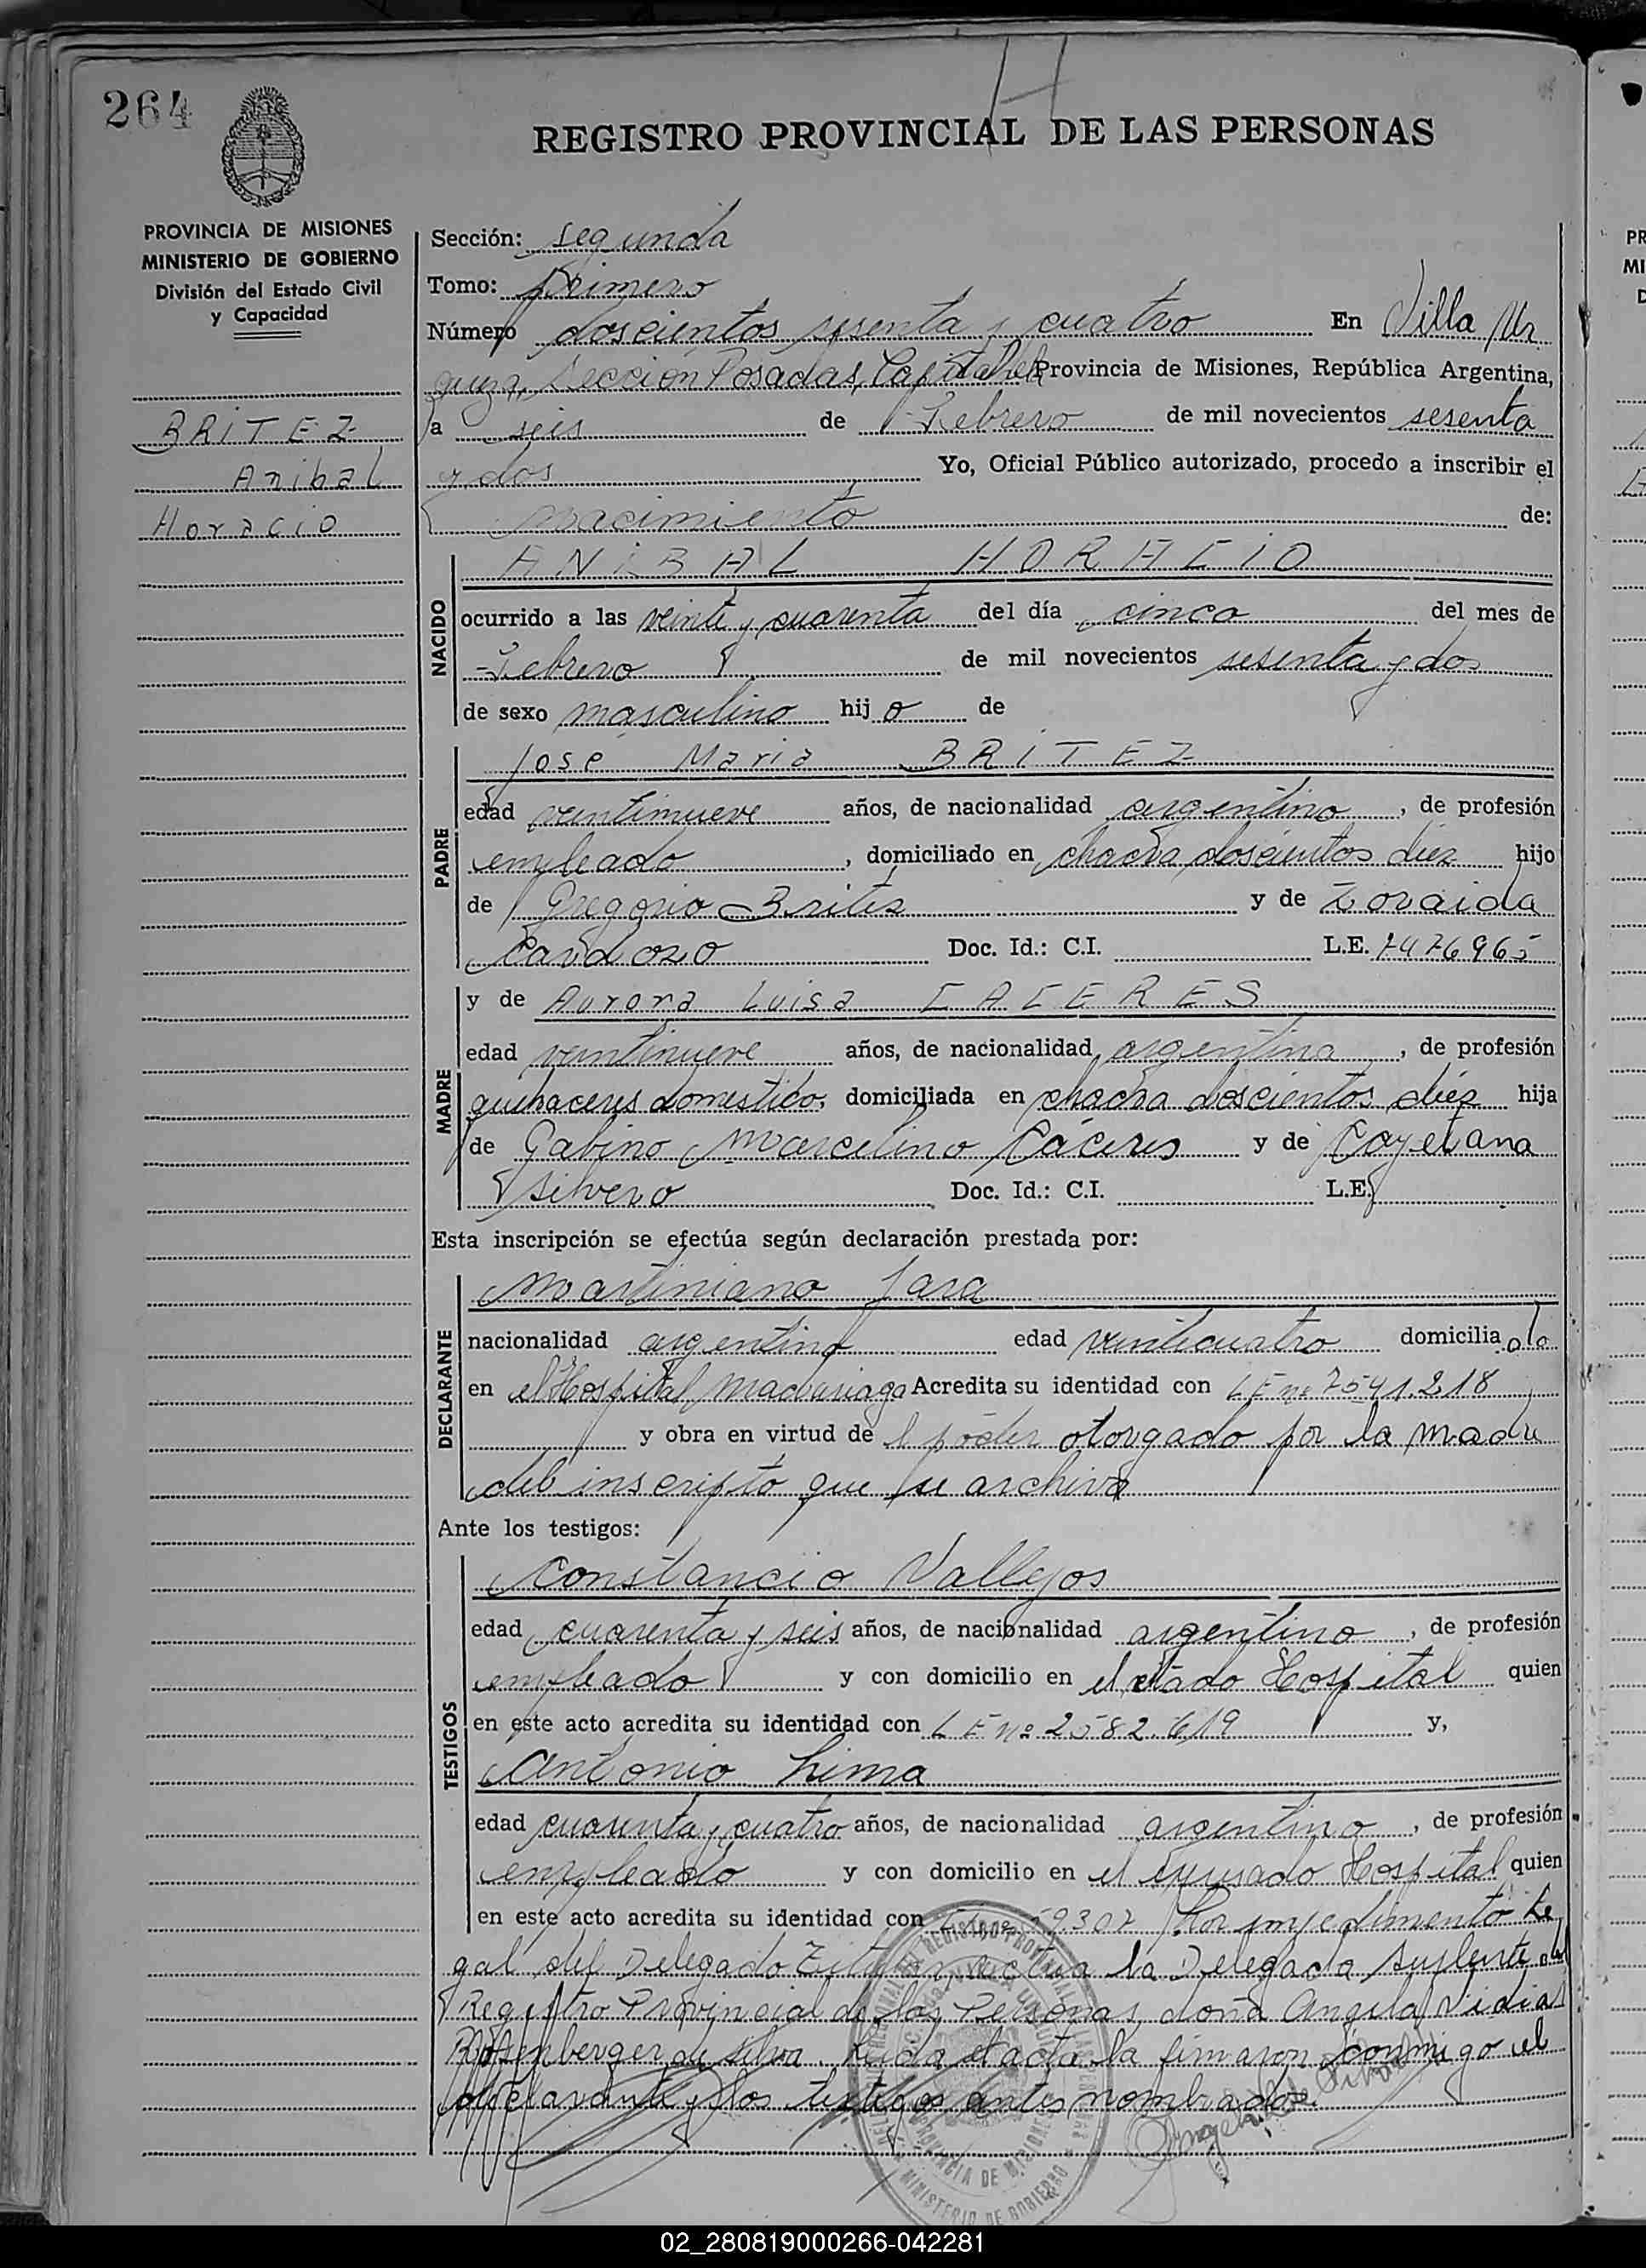 264
REGISTRO PROVINCIAL DE LAS PERSONAS
PROVINCIA DE MISIONES
MINISTERIO DE GOBIERNO
División del Estado Civil
y Capacidad
BRITEZ
Anibal
Horacio
Sección: segunda
Tomo: primero
Número doscientos sesenta y cuatro En Villa Ur
quiza, Sección Posadas, Capital de la Provincia de Misiones, República Argentina,
a seis de Febrero de mil novecientos sesenta
y dos Yo, Oficial Público autorizado, procedo a inscribir el
nacimiento de:
NACIDO
ANIBAL HORACIO
ocurrido a las veinte y cuarenta del día cinco del mes de
Febrero de mil novecientos sesenta y dos
de sexo masculino hij o de
PADRE
José Maria BRITEZ
edad veintinueve años, de nacionalidad argentino, de profesión
empleado, domiciliado en chacra doscientos diez hijo
de Gregorio Britez y de Zoraida
Cardozo Doc. Id.: C.I. L.E. 7476965
MADRE
y de Aurora Luisa CACERES
edad veintinueve años, de nacionalidad argentina, de profesión
quehaceres domestico, domiciliada en chacra doscientos diez hija
de Gabino Marcelino Cáceres y de Cayetana
Silvero Doc. Id.: C.I. L.E.
Esta inscripción se efectúa según declaración prestada por:
DECLARANTE
Martiniano Jara
nacionalidad argentino edad veinticuatro domicilia do
en el Hospital Madariaga Acredita su identidad con LE nº 7541.218
y obra en virtud de l poder otorgado por la madre
del inscripto que se archiva
Ante los testigos:
TESTIGOS
Constancio Vallejos
edad cuarenta y seis años, de nacionalidad argentino, de profesión
empleado y con domicilio en el citado Hospital quien
en este acto acredita su identidad con LE nº 2582.619 y,
Antonio Lima
edad cuarenta y cuatro años, de nacionalidad argentino, de profesión
empleado y con domicilio en el expresado Hospital quien
en este acto acredita su identidad con 9.307 Por impedimento le
gal del Delegado Titular, actua la Delegada suplente del
Registro Provincial de las Personas, doña Angela Lidia
de Silva. Leida el acta la firmaron conmigo el
declarante y los testigos antes nombrados.
MINISTERIO DE GOBIERNO
PROVINCIA DE MISIONES
02_280819000266-042281